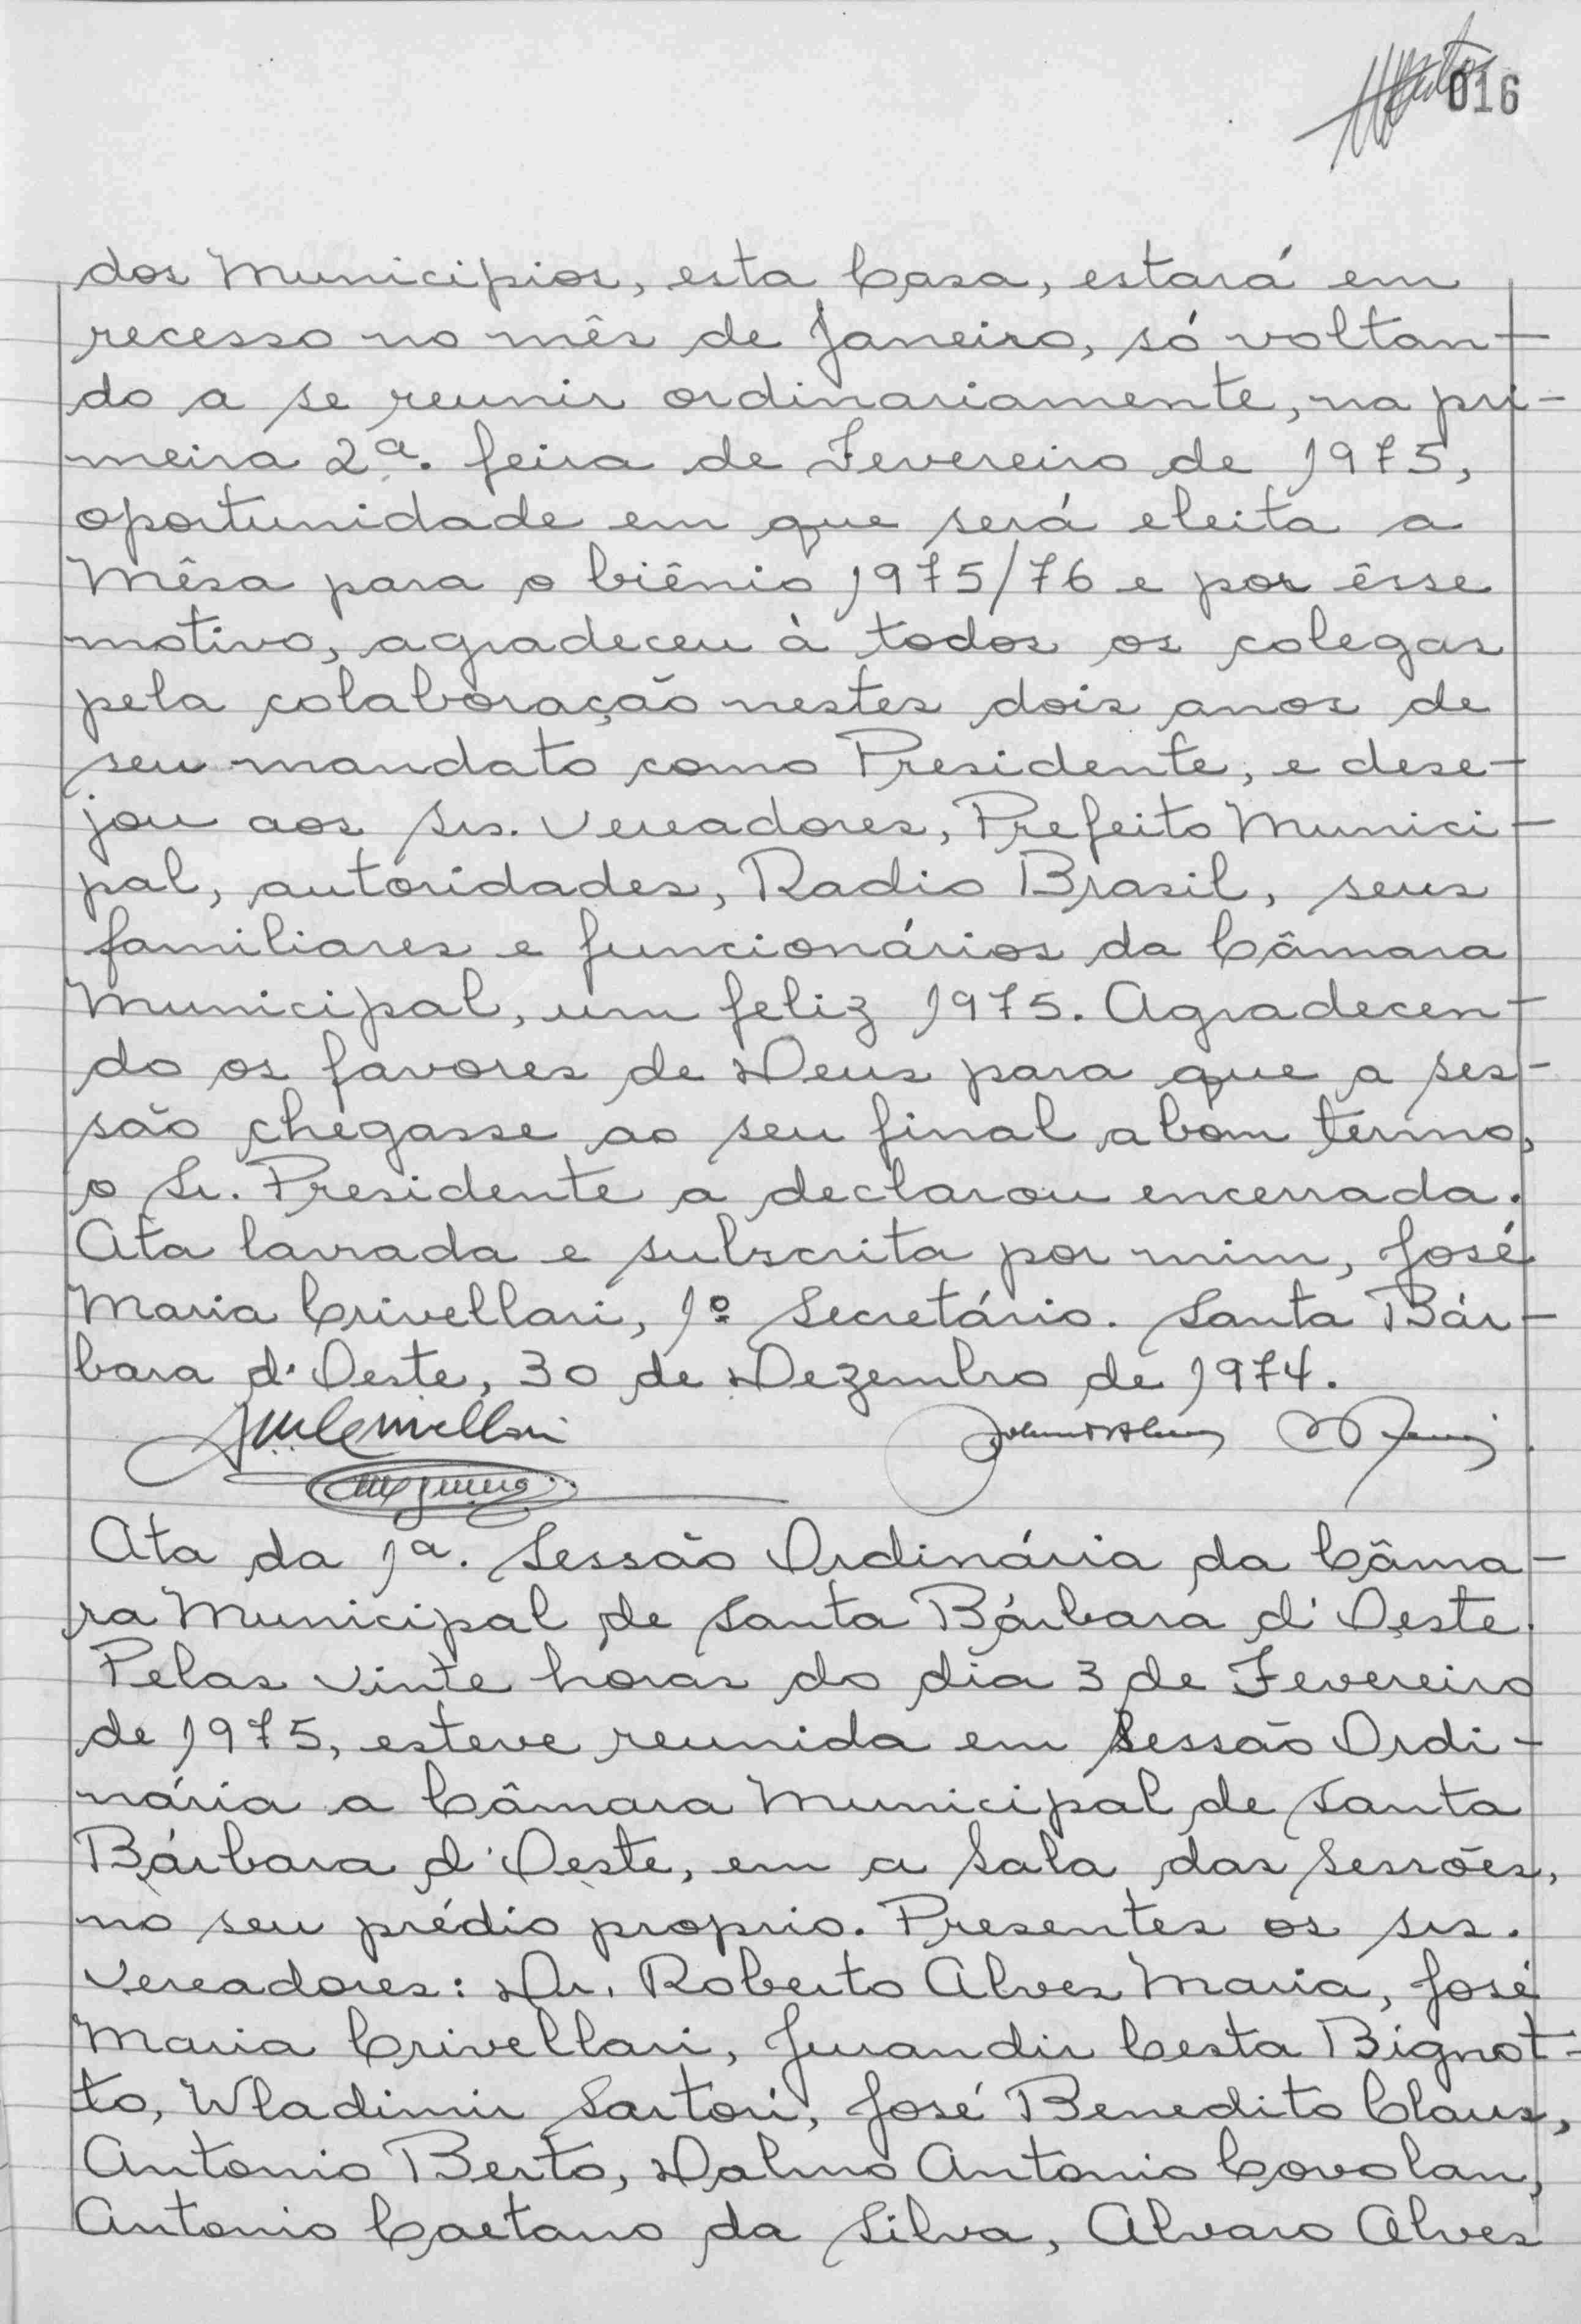 016
dos Municipios, esta Casa, estará em
recesso no mês de Janeiro, só voltan-
do a se reunir ordinariamente, na pri-
meira 2ª. feira de Fevereiro de 1975,
oportunidade em que será eleita a
Mêsa para o biênio 1975/76 e por êsse
motivo, agradeceu à todos os colegas
pela colaboração nestes dois anos de
seu mandato como Presidente, e dese-
jou aos srs. Vereadores, Prefeito Munici-
pal, autoridades, Radio Brasil, seus
familiares e funcionários da Câmara
Municipal, um feliz 1975. Agradecen-
do os favores de Deus para que a ses-
são chegasse ao seu final a bom termo,
o Sr. Presidente a declarou encerrada.
Ata lavrada e subscrita por mim, José
Maria Crivellari, 1º Secretário. Santa Bár-
bara d'Oeste, 30 de Dezembro de 1974.
Ata da 1ª. Sessão Ordinária da Câma-
ra Municipal de Santa Bárbara d'Oeste.
Pelas vinte horas do dia 3 de Fevereiro
de 1975, esteve reunida em Sessão Ordi-
nária a Câmara Municipal de Santa
Bárbara d'Oeste, em a Sala das Sessões,
no seu prédio proprio. Presentes os srs.
Vereadores: Dr. Roberto Alves Maria, José
Maria Crivellari, Jurandir Cesta Bignot-
to, Wladimir Sartori, José Benedito Claus,
Antonio Berto, Dalmo Antonio Covolan,
Antonio Caetano da Silva, Alvaro Alves